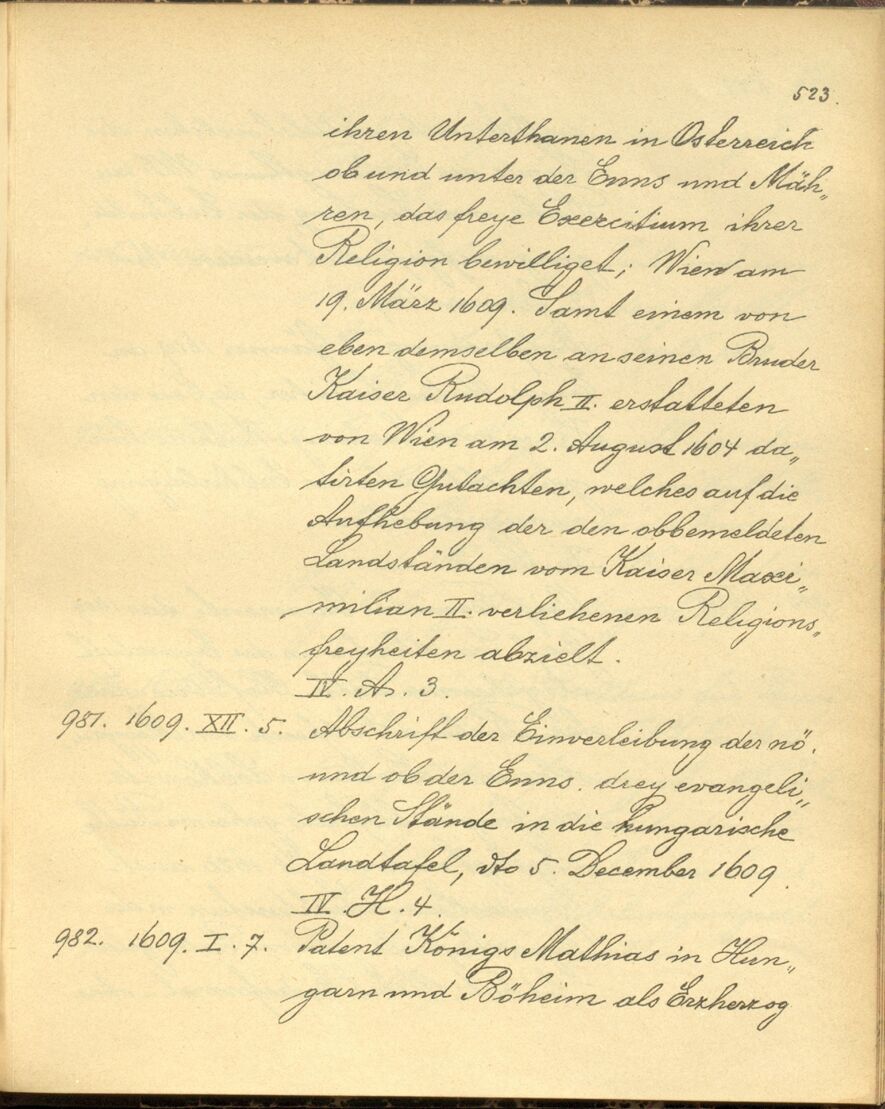 523.
ihren Unterthanen in Osterreich
ob und unter der Enns und Mäh„
ren, das freye Exercitium ihrer
Religion bewilliget; Wien am
19. März 1609. Samt einem von
eben demselben an seinen Bruder
Kaiser Rudolph II. erstatteten
von Wien am 2. August 1604 da„
tirten Gutachten, welches auf die
Aufhebung der den obbemeldeten
Landständen vom Kaiser Maxi„
milian II. verliehenen Religions„
freyheiten abzielt.
IV. A. 3.
981. 1609. XII. 5. Abschrift der Einverleibung der nö.
und ob der Enns. drey evangeli„
schen Stände in die hungarische
Landtafel, dto 5. December 1609.
IV. H. 4.
982. 1609. I. 7. Patent Königs Mathias in Hun„
garn und Böheim als Erzherzog